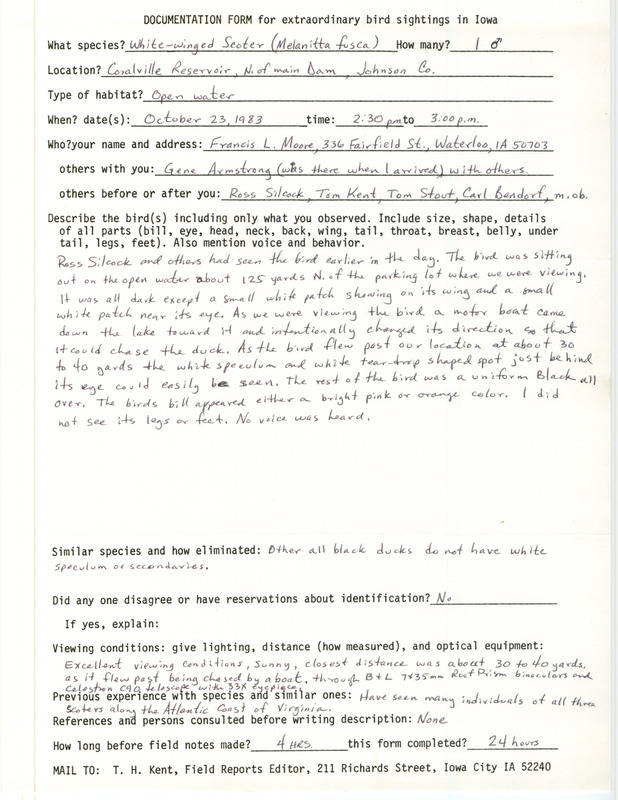 DOCUMENTATION FORM for extraordinary bird sightings in Iowa
What species? White-winged Scoter (Melanitta fusca) How many? 1 ♂
Location? Coralville Reservoir, N. of main Dam, Johnson Co.
Type of habitat? Open water
When? date(s): October 23, 1983 time: 2:30 pm to 3:00 p.m.
Who? your name and address: Francis L. Moore, 336 Fairfield St., Waterloo, IA 50703
others with you: Gene Armstrong (was there when I arrived) with others.
others before or after you: Ross Silcock, Tom Kent, Tom Stout, Carl Bendorf, m.ob.
Describe the bird(s) including only what you observed. Include size, shape, details
of all parts (bill, eye, head, neck, back, wing, tail, throat, breast, belly, under
tail, legs, feet). Also mention voice and behavior.
Ross Silcock and others had seen the bird earlier in the day. The bird was sitting
out on the open water about 125 yards N. of the parking lot where we were viewing.
It was all dark except a small white patch showing on its wing and a small
white patch near its eye. As we were viewing the bird a motor boat came
down the lake toward it and intentionally changed its direction so that
it could chase the duck. As the bird flew past our location at about 30
to 40 yards the white speculum and white tear-drop shaped spot just behind
its eye could easily be seen. The rest of the bird was a uniform Black all
over. The birds bill appeared either a bright pink or orange color. I did
not see its legs or feet. No voice was heard.
Similar species and how eliminated: Other all black ducks do not have white
speculum or secondaries.
Did any one disagree or have reservations about identification? No
If yes, explain:
Viewing conditions: give lighting, distance (how measured), and optical equipment:
Excellent viewing conditions, sunny, closest distance was about 30 to 40 yards,
as it flew past being chased by a boat, through B+L 7x35mm Roof Prism binoculars and
Celestron C90 telescope with 33X eyepiece.
Previous experience with species and similar ones: Have seen many individuals of all three
Scoters along the Atlantic Coast of Virginia.
References and persons consulted before writing description: None
How long before field notes made? 4 HRS. this form completed? 24 hours
MAIL TO: T. H. Kent, Field Reports Editor, 211 Richards Street, Iowa City IA 52240